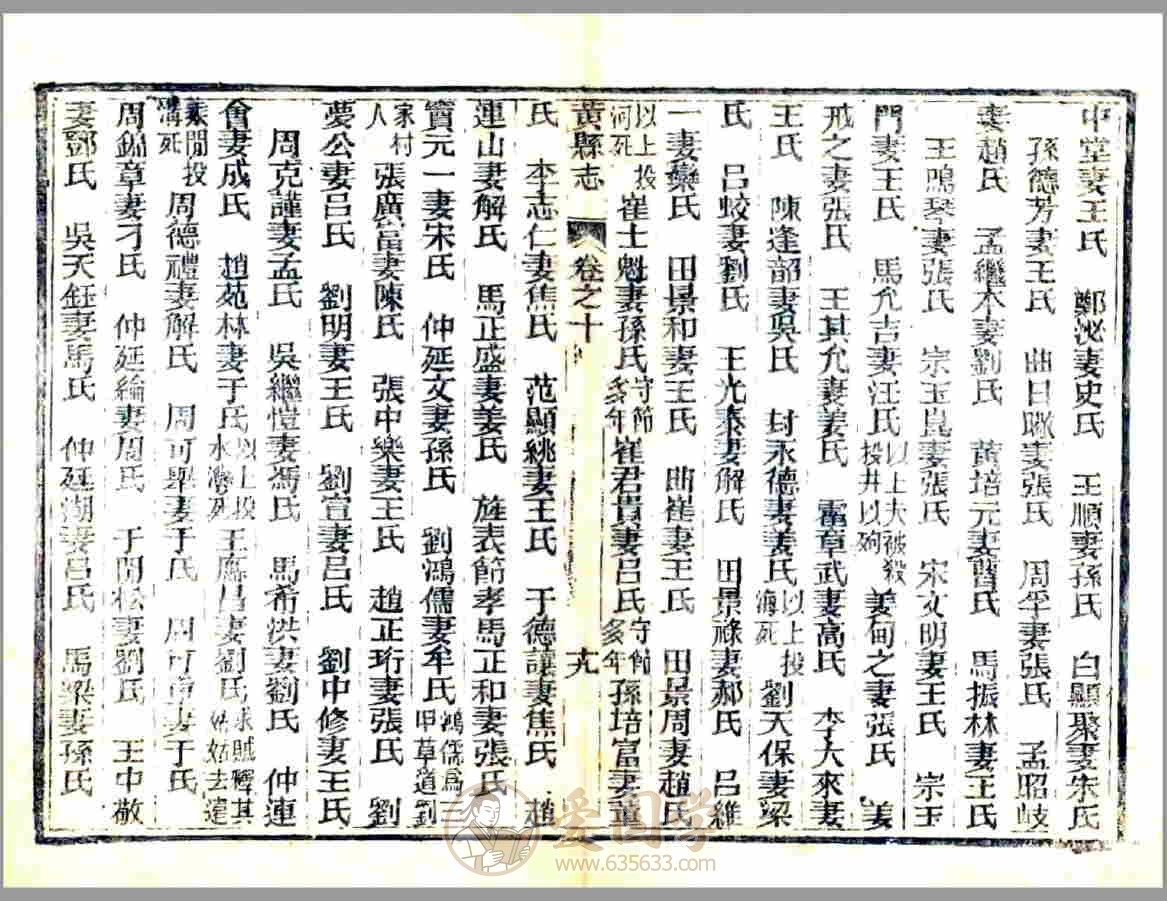 中堂妻王氏 鄭泌妻史氏 王順妻孫氏 白顯聚妻朱氏
孫德芳妻王氏 曲日 妻張氏 周孚妻張氏 孟昭岐
妻趙氏 孟繼木妻劉氏 黃培元妻習氏 馬振林妻王氏
王鳴琴妻張氏 宗玉崑妻張氏 宋文明妻王氏 宗玉
門妻王氏 馬允吉妻汪氏以上夫被殺投井以殉 姜甸之妻張氏 姜
戒之妻張氏 王其允妻姜氏 雷章武妻高氏 李大來妻
王氏 陳逢韶妻吳氏 封永德妻姜氏以上投海死 劉天保妻梁
氏 呂蛟妻劉氏 王光泰妻解氏 田景祿妻郝氏 呂維
一妻欒氏 田景和妻王氏 曲崔妻王氏 田景周妻趙氏
以上投河死 崔士魁妻孫氏守節多年 崔君貴妻呂氏守節多年 孫培富妻章
黃縣志 卷之十 十九
氏 李志仁妻焦氏 范顯姚妻王氏 于德讓妻焦氏 趙
連山妻解氏 馬正盛妻姜氏 旌表節孝馬正和妻張氏
竇元一妻宋氏 仲延文妻孫氏 劉鴻儒妻牟氏鴻儒爲 甲草道劉
家村人 張廣富妻陳氏 張中樂妻王氏 趙正珩妻張氏 劉
夢公妻呂氏 劉明妻王氏 劉宣妻呂氏 劉中修妻王氏
周克謹妻孟氏 吳繼愷妻馮氏 馬希洪妻劉氏 仲連
會妻成氏 趙苑林妻于氏以上投水灣死 王應昌妻劉氏求賊釋其姑姑去遠
乘間投溝死 周德禮妻解氏 周可舉妻于氏 周可 妻于氏
周錦章妻刁氏 仲延綸妻周氏 于開松妻劉氏 王中敬
妻鄧氏 吳天鈺妻馬氏 仲延湖妻呂氏 馬梁妻孫氏
爱国学
www.635633.com